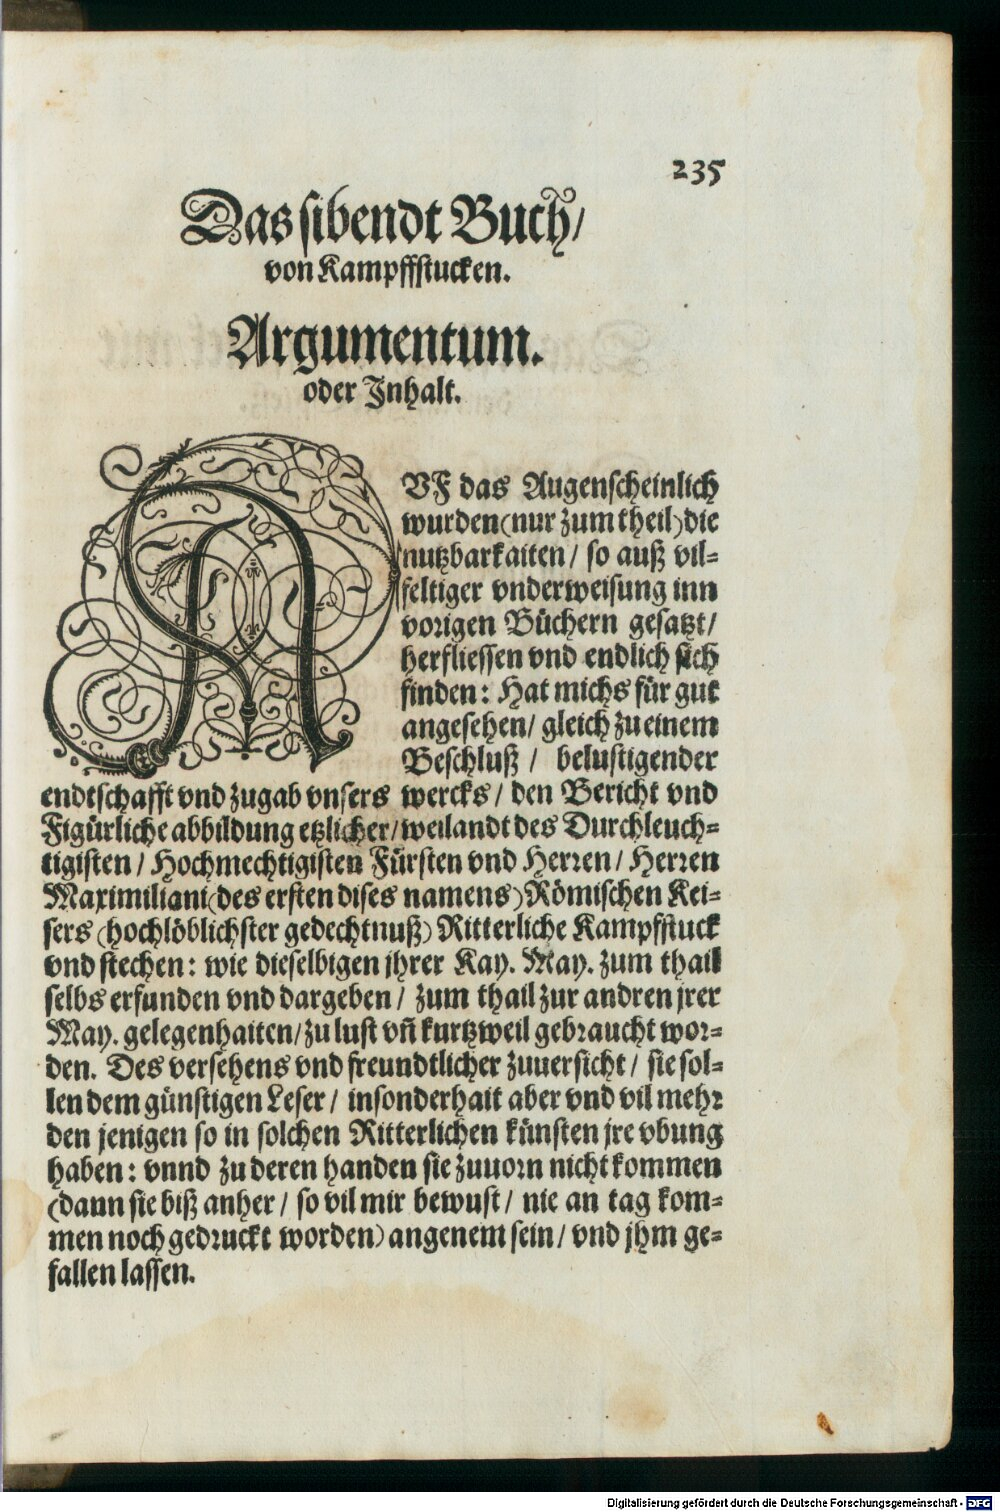 235
Das sibendt Buch/
von Kampffstucken.
Argumentum.
oder Inhalt.
AVF das Augenscheinlich
wurden (nur zum theil) die
nutzbarkaiten / so auß vil-
feltiger vnderweisung inn
vorigen Büchern gesatzt/
herfliessen vnd endlich sich
finden: Hat michs für gut
angesehen/ gleich zu einem
Beschluß / belustigender
endtschafft vnd zugab vnsers wercks / den Bericht vnd
Figürliche abbildung etzlicher/ weilandt des Durchleuch-
tigisten / Hochmechtigisten Fürsten vnd Herren / Herren
Maximiliani (des ersten dises namens) Römischen Kei-
sers (hochlöblichster gedechtnuß) Ritterliche Kampffstuck
vnd stechen: wie dieselbigen jhrer Kay. May. zum thail
selbs erfunden vnd dargeben / zum thail zur andren jrer
May. gelegenhaiten/ zu lust vñ kurtzweil gebraucht wor-
den. Des versehens vnd freundtlicher zuuersicht / sie sol-
len dem günstigen Leser / insonderhait aber vnd vil mehr
den jenigen so in solchen Ritterlichen künsten jre vbung
haben: vnnd zu deren handen sie zuuorn nicht kommen
(dann sie biß anher / so vil mir bewust / nie an tag kom-
men noch gedruckt worden) angenem sein / vnd jhm ge-
fallen lassen.
Digitalisierung gefördert durch die Deutsche Forschungsgemeinschaft - DFG